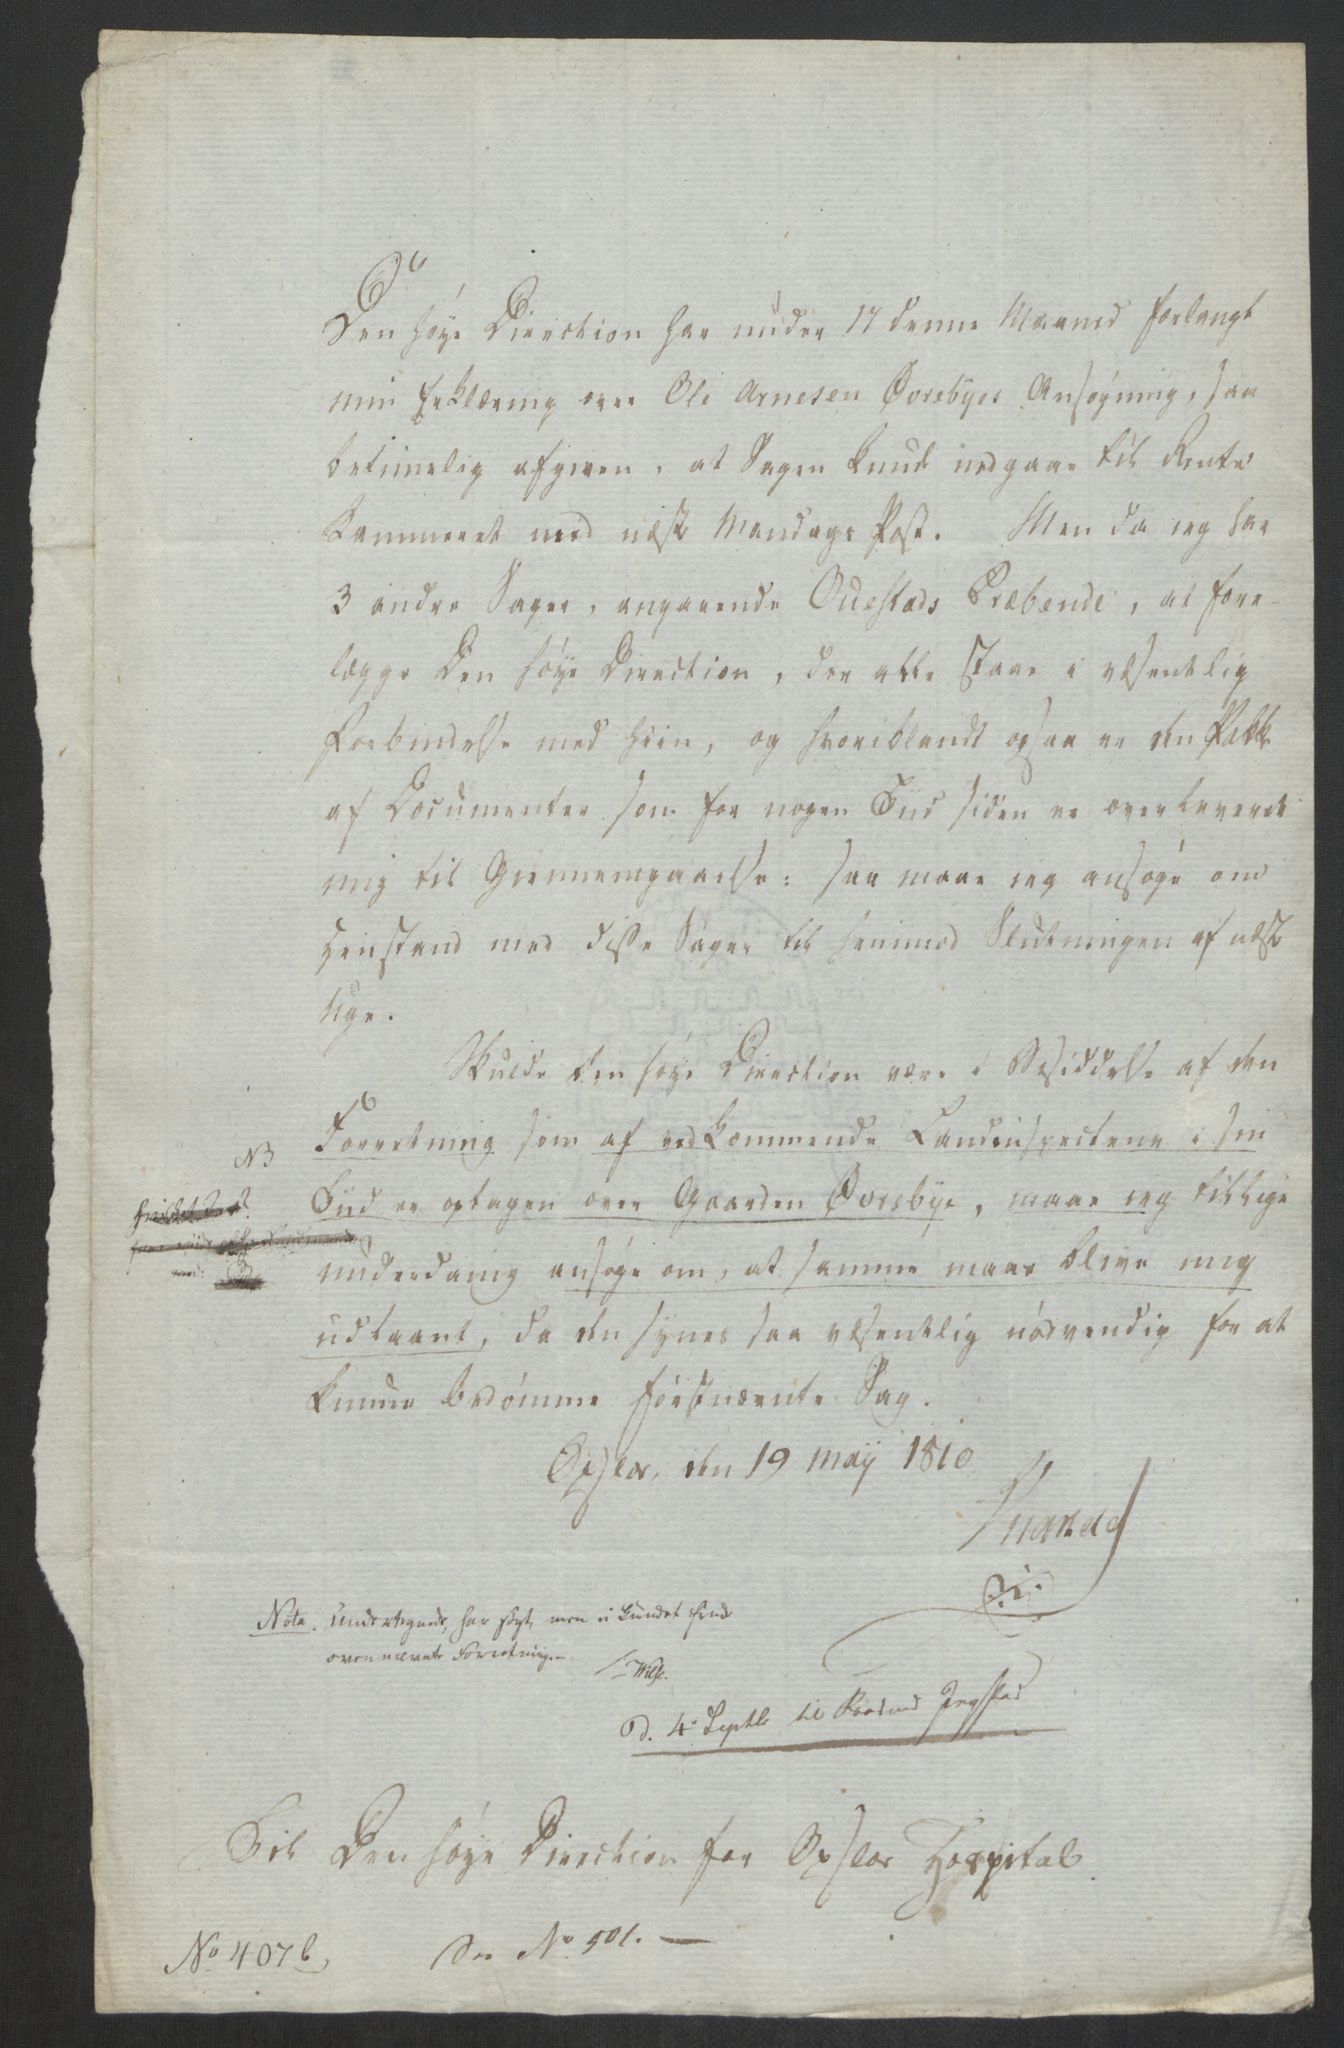 Den høye Direction har under 17 denne Maaned forlangt
min Erklæring over Ole Arnesen Øvrebyes Ansøgning, saa
betimelig afgiven, at Sagen kund nedgaae til Rente
Kammeret med næste Mandags Post. Men da ieg har
3 andre Sager, angaaende Oustads Præbende, at fore-
lægge Den høye Direction, der alle staae i væsentlig
Forbindelse med hiin, og hvoriblandt ogsaa er den Pakke
af Documenter som for nogen Tiid siden er overleveret
mig til Giennemgaaelse: saa maae ieg ansøge om
Henstand med disse Sager til henimod Slutningen af næste
Uge.
Skulde den høye Direction være i Besiddelse af den
Forretning som af vedkommende Landinspecteur i sin
NB
Tiid er optagen over Gaarden Øvrebye, maae ieg tillige
underdanig ansøge om, at samme maae blive mig
udlaant, da den synes saa væsentlig nødvendig for at
kunne bedømme førstnævnte Sag.
Opsloe, den 19 Maij 1810
Nota. Undertegnede, har søgt, men ei kundet finde
ovennævnte Forretning.
Wilse.
d. 4 Septbr til
Til Den høye Direction for Opsloe Hospital.
No 407 b, See No 501.